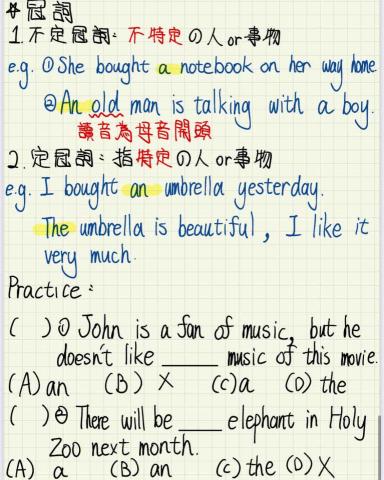 * 冠詞
1. 不定冠詞: 不特定の人or事物
e.g. ①She bought a notebook on her way home.
②An old man is talking with a boy.
讀音為母音開頭
2. 定冠詞: 指特定の人or事物
e.g. I bought an umbrella yesterday.
The umbrella is beautiful, I like it
very much.
Practice:
( )① John is a fan of music, but he
doesn't like ____ music of this movie.
(A) an (B) X (C) a (D) the
( )② There will be ____ elephant in Holy
Zoo next month.
(A) a (B) an (C) the (D) X